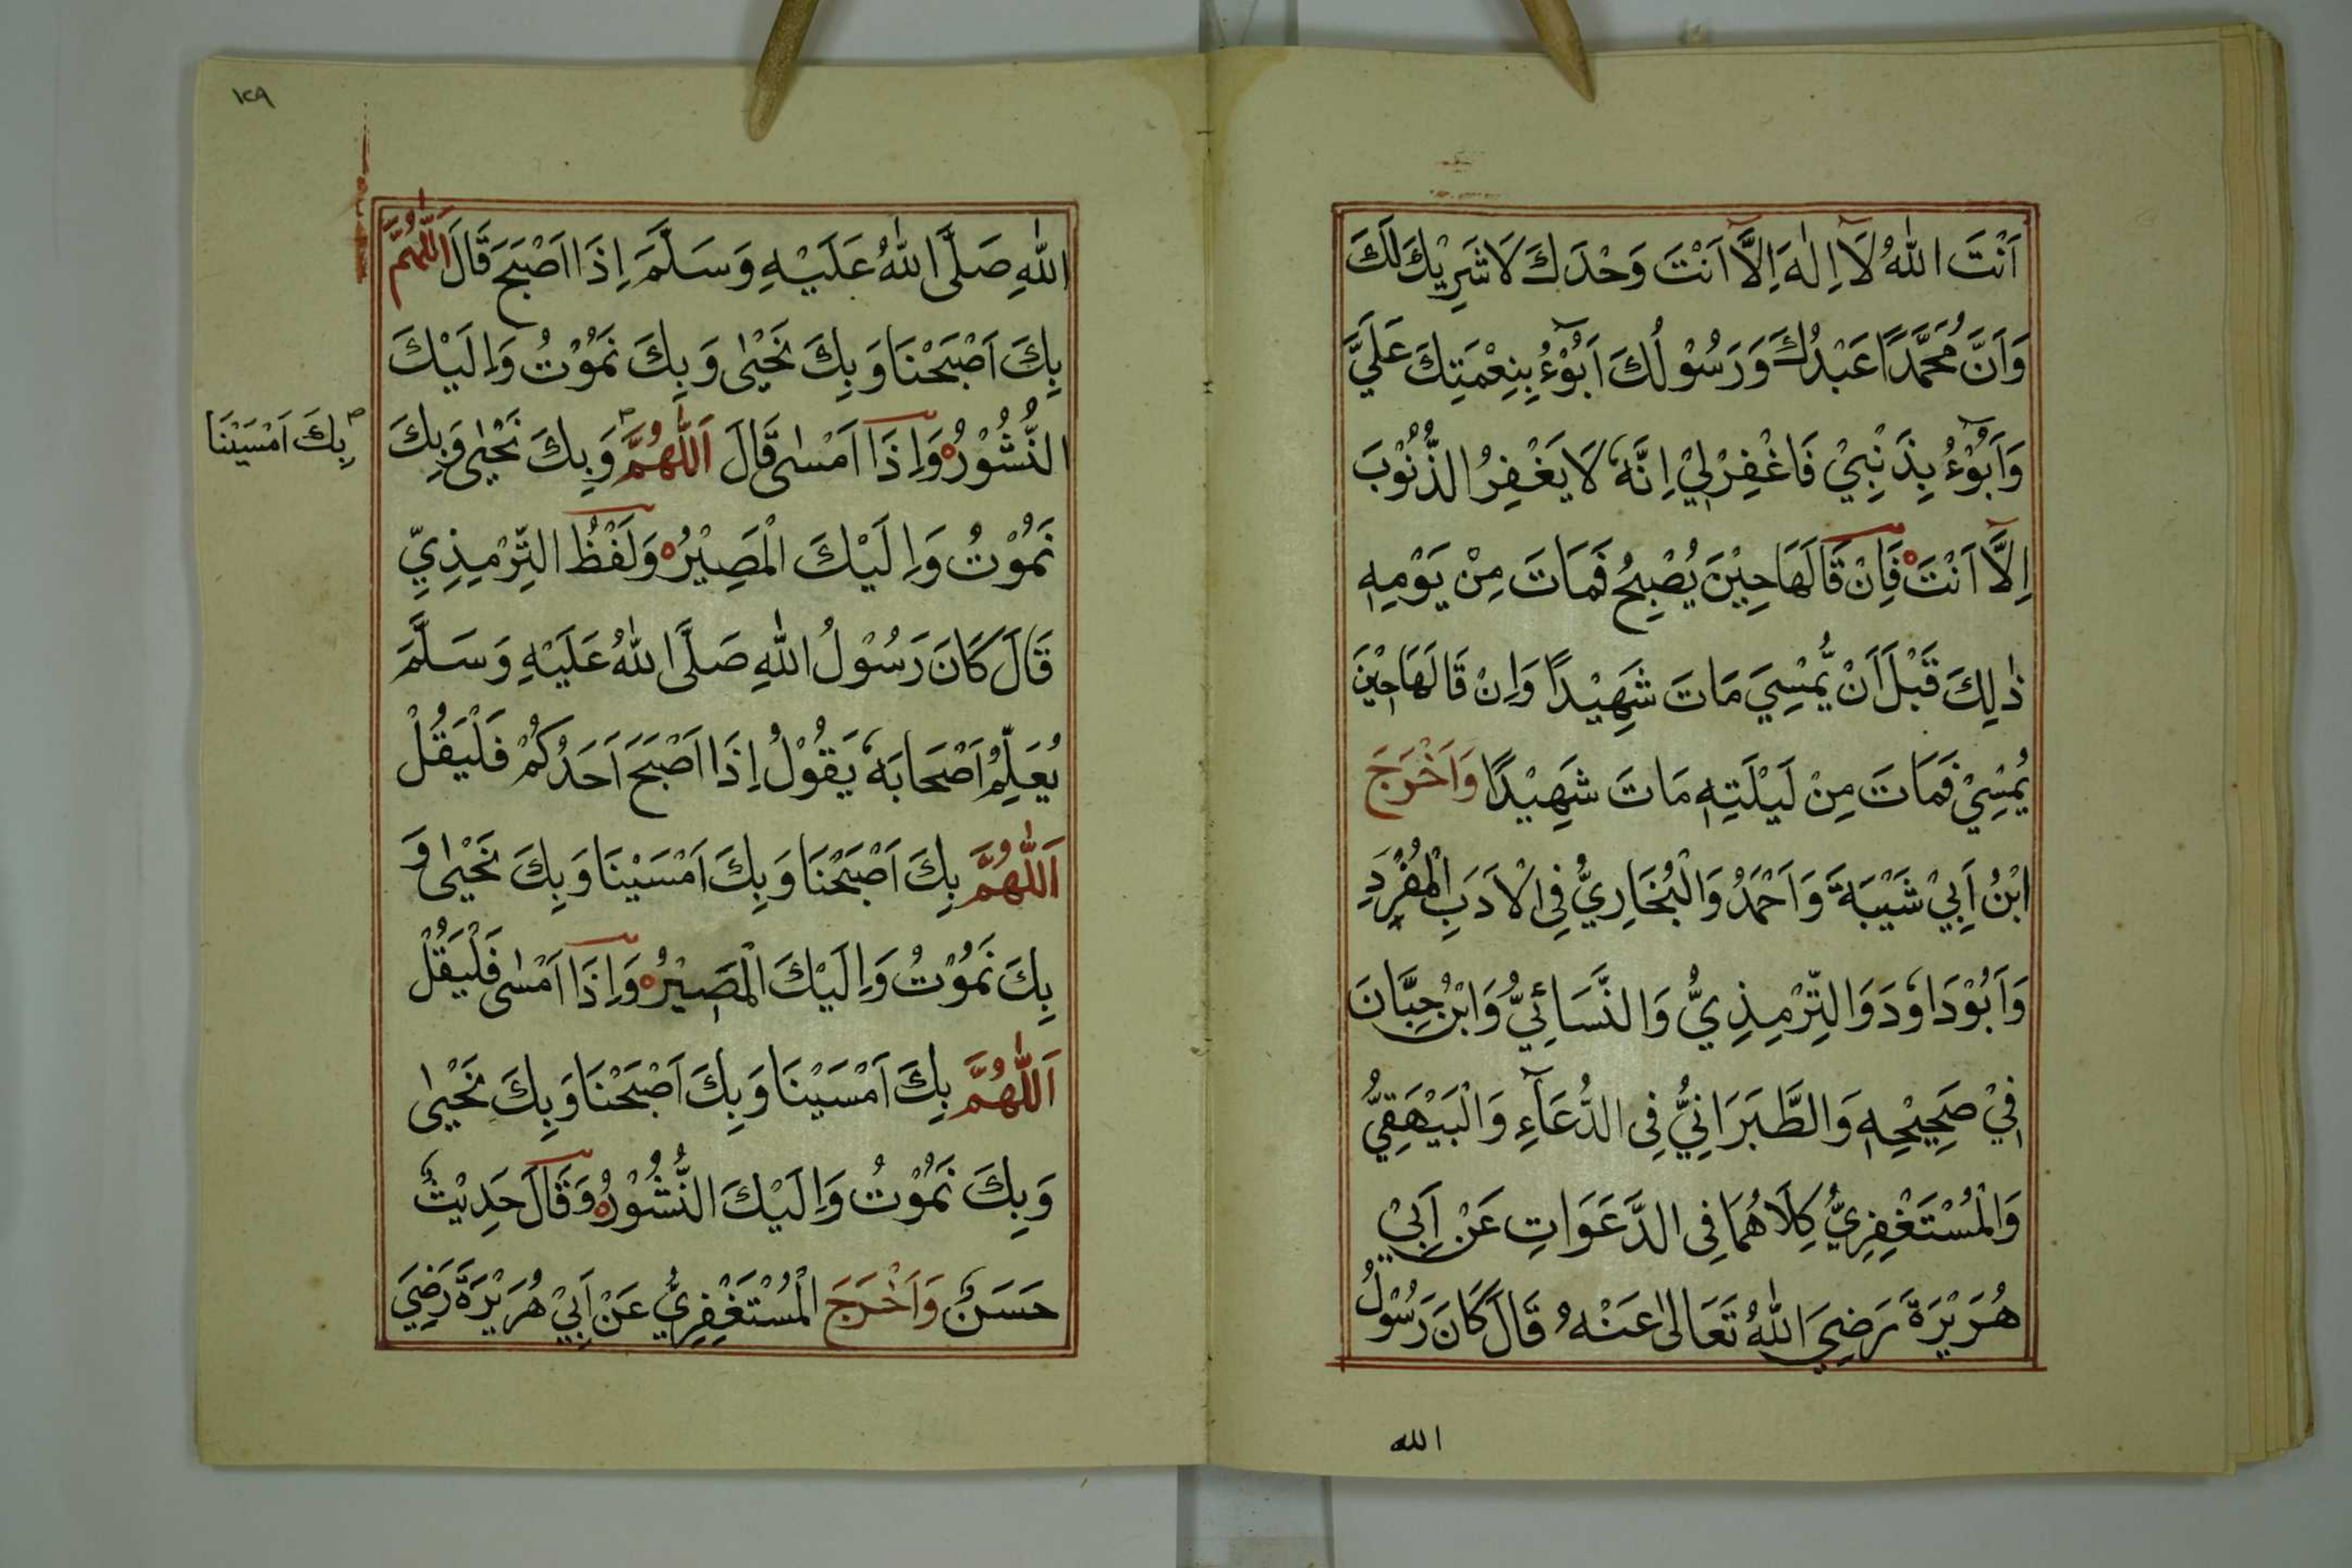 اَنْتَ اللّٰهُ لَآ اِلٰهَ اِلَّآ اَنْتَ وَحْدَكَ لَا شَرِيْكَ لَكَ
وَاَنَّ مُحَمَّدًا عَبْدُكَ وَرَسُوْلُكَ اَبُوْٓءُ بِنِعْمَتِكَ عَلَيَّ
وَاَبُوْٓءُ بِذَنْبِيْ فَاغْفِرْلِيْ اِنَّهٗ لَا يَغْفِرُ الذُّنُوْبَ
اِلَّآ اَنْتَ فَاِنْ قَالَهَا حِيْنَ يُصْبِحُ فَمَاتَ مِنْ يَوْمِهٖ
ذٰلِكَ قَبْلَ اَنْ يُّمْسِيَ مَاتَ شَهِيْدًا وَاِنْ قَالَهَا حِيْنَ
يُمْسِيْ فَمَاتَ مِنْ لَيْلَتِهٖ مَاتَ شَهِيْدًا وَاَخْرَجَ
ابْنُ اَبِيْ شَيْبَةَ وَاَحْمَدُ وَالْبُخَارِيُّ فِى الْاَدَبِ الْمُفْرَدِ
وَاَبُوْدَاوٗدَ وَالتِّرْمِذِيُّ وَالنَّسَائِيُّ وَابْنُ حِبَّانَ
فِيْ صَحِيْحِهٖ وَالطَّبَرَانِيُّ فِى الدُّعَآءِ وَالْبَيْهَقِيُّ
وَالْمُسْتَغْفِرِيُّ كِلَاهُمَا فِى الدَّعَوَاتِ عَنْ اَبِيْ
هُرَيْرَةَ رَضِيَ اللّٰهُ تَعَالٰى عَنْهُ قَالَ كَانَ رَسُوْلُ
الله
١٢٩
اللّٰهِ صَلَّى اللّٰهُ عَلَيْهِ وَسَلَّمَ اِذَا اَصْبَحَ قَالَ اَللّٰهُمَّ
بِكَ اَصْبَحْنَا وَبِكَ نَحْيٰى وَبِكَ نَمُوْتُ وَاِلَيْكَ
النُّشُوْرُ وَاِذَا اَمْسٰى قَالَ اَللّٰهُمَّ وَبِكَ نَحْيٰى وَبِكَ
بِكَ اَمْسَيْنَا
نَمُوْتُ وَاِلَيْكَ الْمَصِيْرُ وَلَفْظُ التِّرْمِذِيِّ
قَالَ كَانَ رَسُوْلُ اللّٰهِ صَلَّى اللّٰهُ عَلَيْهِ وَسَلَّمَ
يُعَلِّمُ اَصْحَابَهٗ يَقُوْلُ اِذَا اَصْبَحَ اَحَدُكُمْ فَلْيَقُلْ
اَللّٰهُمَّ بِكَ اَصْبَحْنَا وَبِكَ اَمْسَيْنَا وَبِكَ نَحْيٰى وَ
بِكَ نَمُوْتُ وَاِلَيْكَ الْمَصِيْرُ وَاِذَا اَمْسٰى فَلْيَقُلْ
اَللّٰهُمَّ بِكَ اَمْسَيْنَا وَبِكَ اَصْبَحْنَا وَبِكَ نَحْيٰى
وَبِكَ نَمُوْتُ وَاِلَيْكَ النُّشُوْرُ وَقَالَ حَدِيْثٌ
حَسَنٌ وَاَخْرَجَ الْمُسْتَغْفِرِيُّ عَنْ اَبِيْ هُرَيْرَةَ رَضِيَ